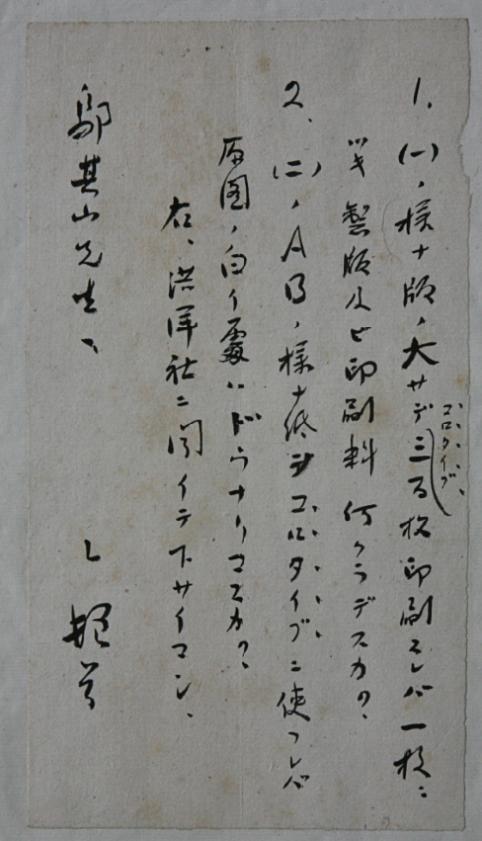 1. (一)ノ様ナ版ノ大サデ三百枚印刷スレバ一枚ニ
コロタイプ
ツキ製版及ビ印刷料何クラデスカ?
2. (二)ノABノ様ナ紙ヲコロタイプニ使フレバ
原図ノ白イ處ハドウナリマスカ?
右、洪洋社ニ聞イテ下サイマシ、
鄔其山先生、
L 頓首